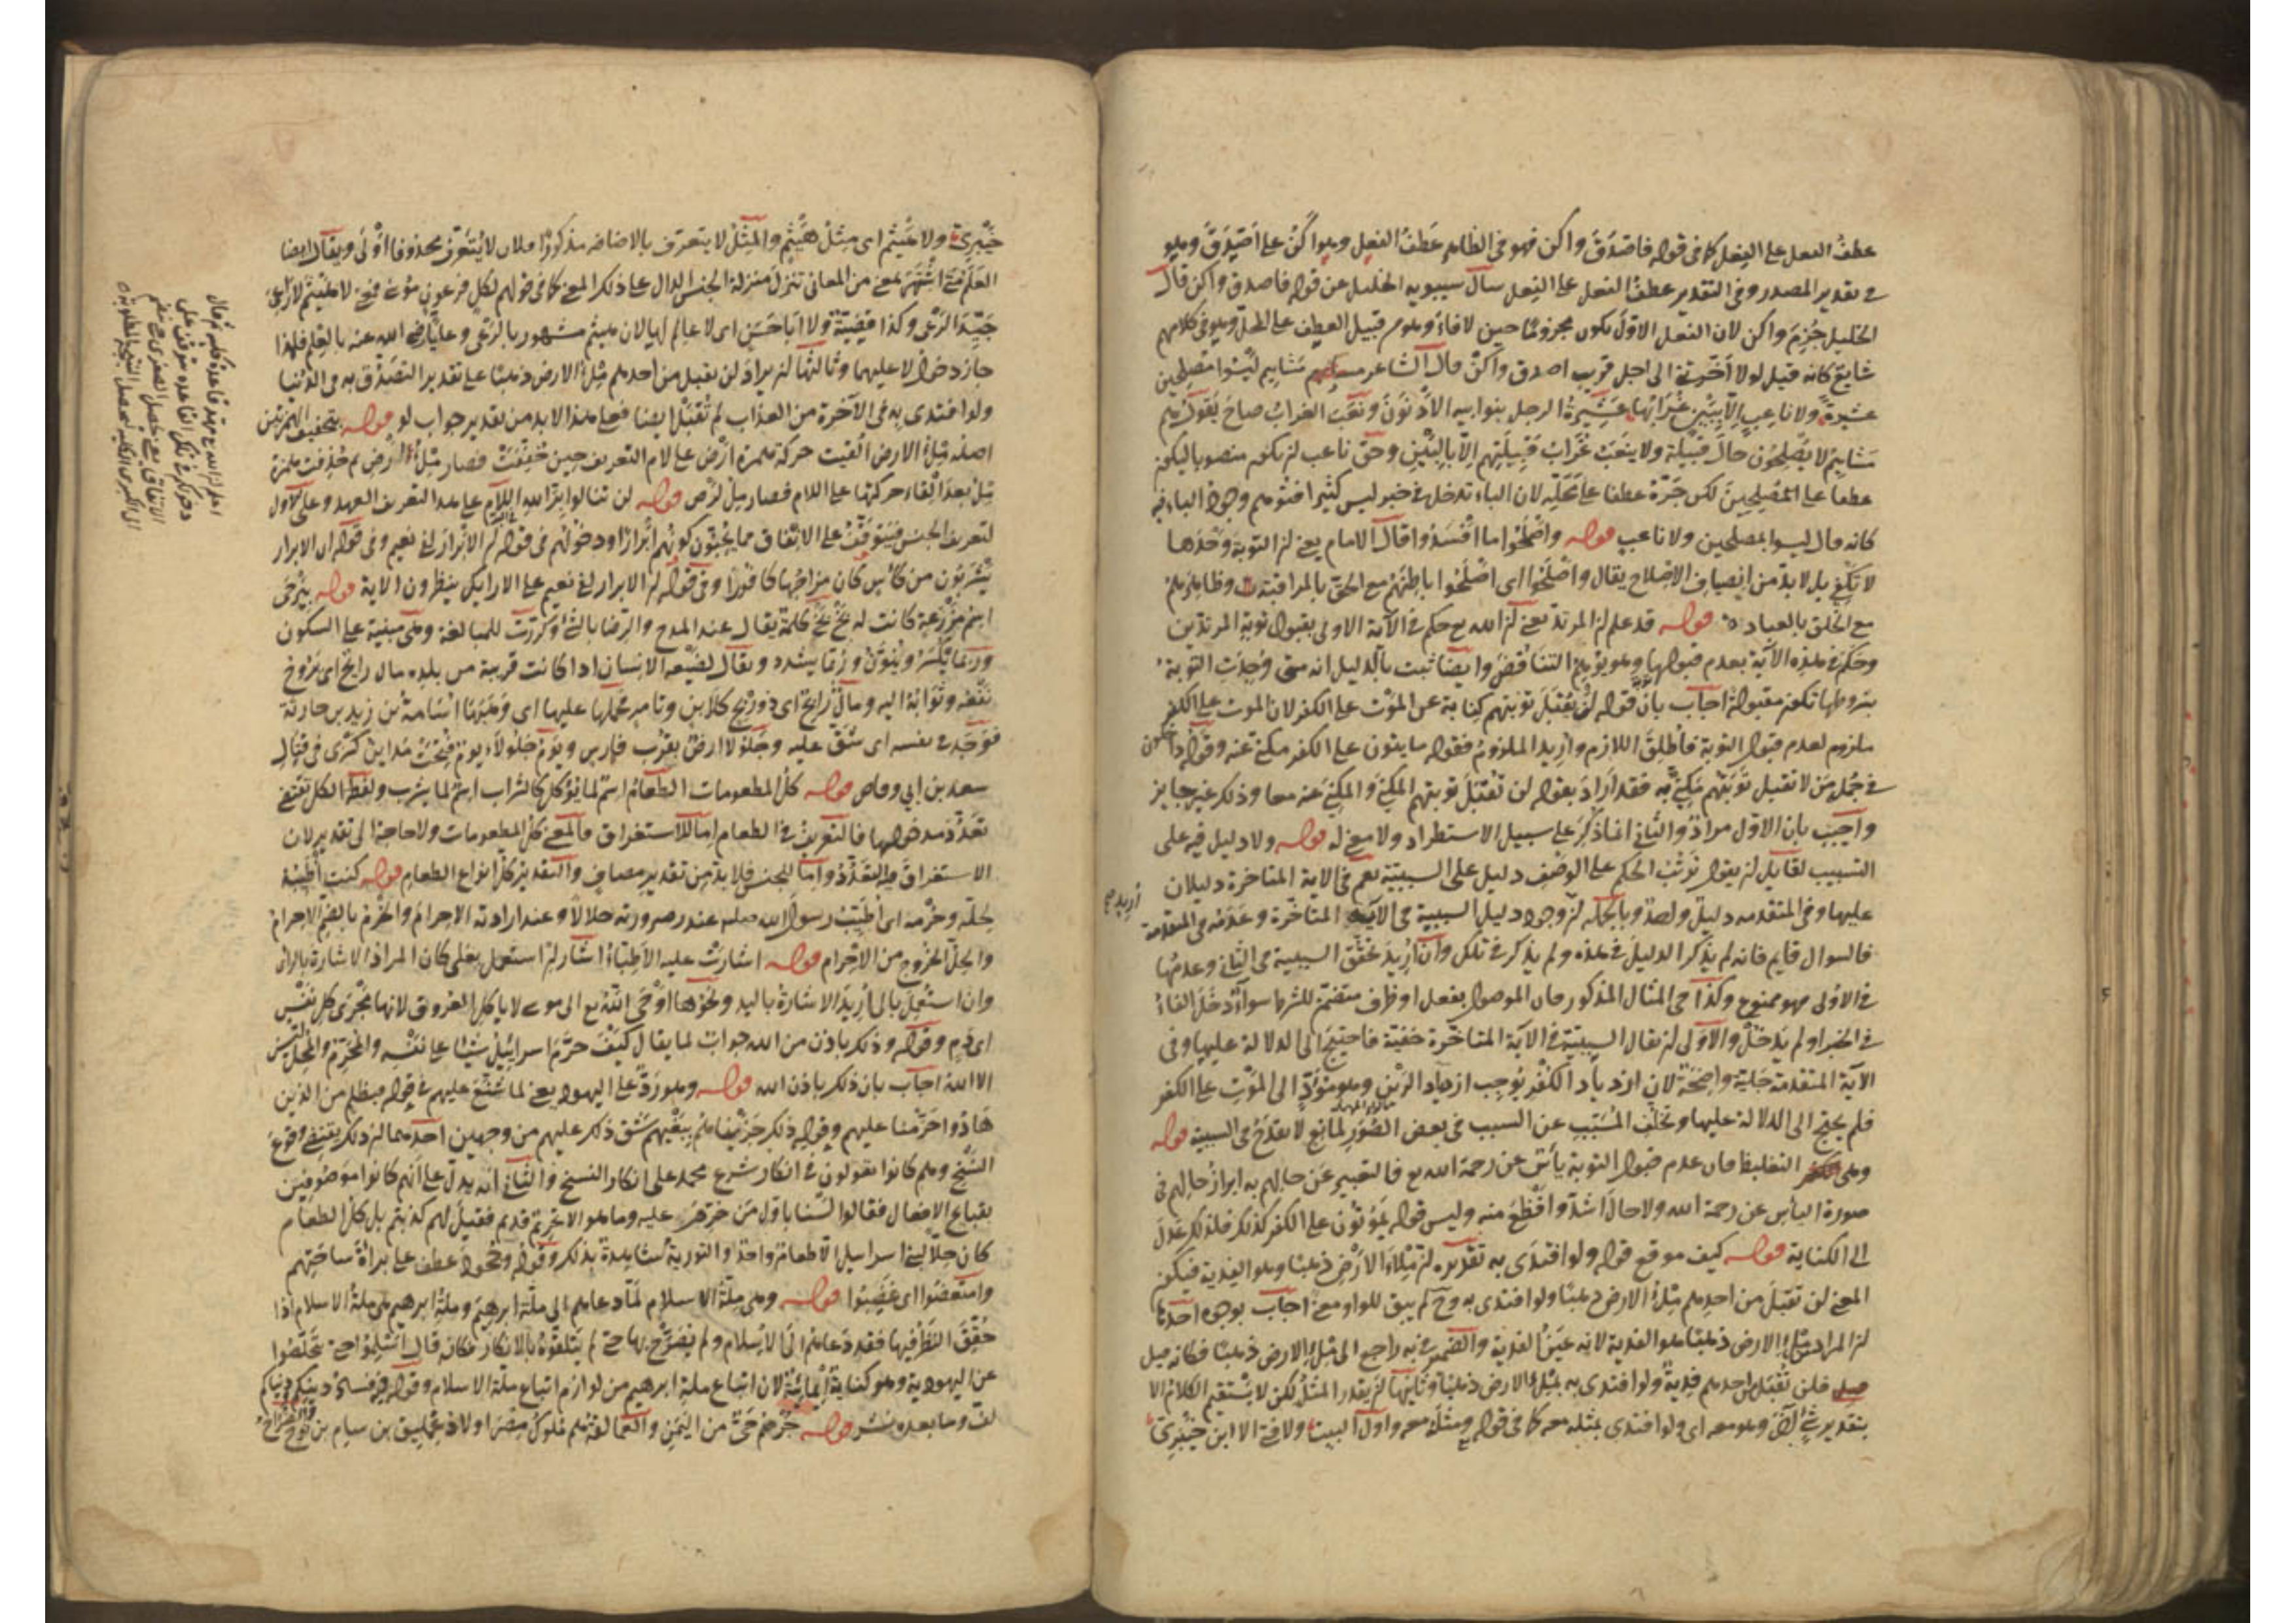 عطف الفعل على الفعل كما في قوله فاصدق واكن فهو في الظاهر عطف الفعل وهو اكن على اصدق وهو
في تقدير المصدر وفي التقدير عطف الفعل على الفعل سأل سيبويه الخليل عن قوله فاصدق واكن قال
الخليل جزم واكن لان الفعل الاول يكون مجزوما حين لا فاء وهو من قبيل العطف على المحل وهو في كلامهم
شايع كانه قيل لولا أخرتني الى اجل قريب اصدق واكن قال الشاعر مشايم ليسوا مصلحين
عشيرة ولا ناعب الا ببين غرابها عشيرة الرجل بنو ابيه الادنون ونعب الغراب صاح يقول هم
مشايم لا يصلحون حال قبيلة ولا ينعب غراب قبيلتهم الا بالبين وحق ناعب ان يكون منصوبا ليكون
عطفا على المصلحين لكن جره عطفا على محله لان الباء تدخل في خبر ليس كثيرا فتوهم وجود الباء فيه
كانه قال ليسوا بمصلحين ولا ناعب قوله واصلحوا ما افسدوا قال الامام يعني ان التوبة وحدها
لا تكفي بل لا بد من انضياف الاصلاح يقال واصلحوا اى اصلحوا باطنهم مع الحق بالمراقبة وظاهرهم
مع الخلق بالعباد قوله قد علم ان المرتد يعني ان الله تع حكم في الآية الاولى بقبول توبة المرتدين
وحكم في هذه الآية بعدم قبولها وهو يوهم التناقض وايضا ثبت بالدليل انه متى وجدت التوبة
بشروطها تكون مقبولة اجاب بان قوله لن تقبل توبتهم كناية عن الموت على الكفر لان الموت على الكفر
ملزوم لعدم قبول التوبة فاطلق اللازم واريد الملزوم فقوله ما يتون على الكفر مكنى عنه وقوله
في جمل من لا تقبل توبتهم مكنى به فقد اراد بقوله لن تقبل توبتهم المكنى والمكنى عنه معا وذلك غير جايز
واجيب بان الاول مراد والثاني انما ذكر على سبيل الاستطراد ولا معنى له قوله ولا دليل فيه على
التسبيب لقايل ان يقول ترتب الحكم على الوصف دليل على السببية نعم في الآية المتاخرة دليلان
عليها وفي المتقدمة دليل واحد وبالجملة ان وجود دليل السببية في الآية المتاخرة وعدمه في المتقدمة
اريد صح
فالسوال قايم فانه لم يذكر الدليل في هذه ولم يذكر في تلك وان اريد تحقق السببية في الثاني وعدمها
في الاولى فهو ممنوع وكذا في المثال المذكور فان الموصول بفعل او ظرف متضمن للشرط سواء دخل الفاء
في الخبر او لم يدخل والاولى ان يقال السببية في الآية المتاخرة خفية فاحتيج الى الدلالة عليها وفي
الآية المتقدمة جلية واضحة لان ازدياد الكفر يوجب ازدياد الرين وهو مؤد الى الموت على الكفر
فلم يحتج الى الدلالة عليها وتخلف المسبب عن السبب في بعض الصور لمانع لا يقدح في السببية قوله
وهى التغليظ فان عدم قبول التوبة يأس عن رحمة الله تع فالتعبير عن حالهم به ابراز حالهم في
صورة اليأس عن رحمة الله ولا حال اشد وافظع منه وليس قوله يموتون على الكفر كذلك فلذلك عدل
الى الكناية قوله كيف موقع قوله ولو افتدى به تقديره ان ملاء الارض ذهبا وهو الفدية فيكون
المعنى لن تقبل من احدهم ملء الارض ذهبا ولو افتدى به وح لم يبق للواو معنى اجاب بوجوه احدها
ان المراد بملء الارض ذهبا هو الفدية لانه عين الفدية والضمير في به راجع الى ملء الارض ذهبا فكانه قيل
فلن تقبل من احدهم فدية ولو افتدى به بملء الارض ذهبا وثانيها ان يقدر المثل لكن لا يستقيم الكلام الا
بتقدير شئ آخر وهو معه اى ولو افتدى بمثله معه كما في قوله ومثله معه واول البيت ولا فتى الا ابن خيبري
خيبري ولا هيثم اى مثل هيثم والمثل لا يتعرف بالاضافه مذكورا فلان لا يتعرف محذوفا اولى ويقال ايضا
العلم متى اشتهر بمعنى من المعاني تنزل منزلة الجنس الدال على ذلك المعنى كما في قولهم لكل فرعون موسى فمعنى لا هيثم لا راعى
جيد الرعى وكذا قضية ولا ابا حسن اى لا عالم لها لان هيثم مشهور بالرعى وعليا رضى الله عنه بالعلم فلهذا
جاز دخول لا عليهما وثالثها ان يراد لن يقبل من احدهم ملء الارض ذهبا على تقدير التصدق به في الدنيا
ولو افتدى به في الآخرة من العذاب لم تقبل ايضا فعلى هذا لا بد من تقدير جواب لو قوله بتخفيف الهمزتين
اصله ملء الارض القيت حركة همزة ارض على لام التعريف حين خففت فصار ملء لرض ثم حذفت همزة
ملء بعد القاء حركتها على اللام فصار مل لرض قوله لن تنالوا بر الله اللام على هذا التعريف العهد وعلى الاول
لتعريف الجنس فيتوقف على الانفاق مما يحبون كونهم ابرارا ودخولهم في قوله ان الابرار لفي نعيم وفي قوله ان الابرار
يشربون من كاس كان مزاجها كافورا وفي قوله ان الابرار لفي نعيم على الارايك ينظرون الآية قوله بيرحى
اسم مزرعة كانت له بخ بخ كلمة يقال عند المدح والرضا بالشئ وكررت للمبالغة وهى مبنية على السكون
وربما تكسر وينون وربما يشدد ويقال لضيعه الانسان اذا كانت قريبة من بلده مال رايح اى يروح
نفعه وثوابه اليه ومال رابح اى ذو ربح كلابن وتامر حملها عليها اى وهبها اسامة بن زيد بن حارثة
فوجد في نفسه اى شق عليه وجلولا ارض بقرب فارس ويوم جلولاء يوم فتحت مداين كسرى في قتال
سعد بن ابي وقاص قوله كل المطعومات الطعام اسم لما يؤكل كالشراب اسم لما يشرب ولفظ الكل تقتضي
تعدد مدخولها فالتعريف في الطعام اما للاستغراق فالمعنى كل المطعومات ولا حاجة الى تقدير لان
الاستغراق فيه التعدد واما للجنس فلا بد من تقدير مضاف والتقدير كل انواع الطعام قوله كنت اطيبه
لحله وحرمه اى اطيب رسول الله صلعم عند صيرورته حلالا وعند ارادته الاحرام والحرم بالضم الاحرام
والحل الخروج من الاحرام قوله اشارت عليه الاطباء اشار ان استعمل بعلى كان المراد الاشارة بالراى
وان استعمل بالى اريد الاشارة باليد ونحوها اوحى الله تع الى موسى لا ياكل العروق لانها مجرى كل نفس
اى دم وقوله وذلك باذن من الله جواب لما يقال كيف حرم اسرائيل شيئا على نفسه والمحرم والمحل ليس
الا الله اجاب بان ذلك باذن الله قوله وهو رد على اليهود يعني لما شنع عليهم في قوله فبظلم من الذين
هادوا حرمنا عليهم وقوله ذلك جزيناهم ببغيهم شق ذلك عليهم من وجهين احدهما ان ذلك يقتضي وقوع
النسخ وهم كانوا يقولون في انكار شرع محمد على انكار النسخ والثاني انه يدل على انهم كانوا موصوفين
بقبايح الافعال فقالوا لسنا باول من حرمت عليه وما هو الا تحريم قديم فقيل لهم كذبتم بل كل الطعام
كان حلا لبنى اسرائيل الا طعاما واحدا والتورية شاهدة بذلك وقوله وجحود عطف على براءة ساحتهم
وامتعضوا اى غضبوا قوله وهى ملة الاسلام لما دعاهم الى ملة ابرهيم وملة ابرهيم هى ملة الاسلام اذا
حقق النظر فيها فقد دعاهم الى الاسلام ولم يصرح بها حتى لم يتلقوه بالانكار فكانه قال اسلموا حتى تخلصوا
عن اليهودية وهو كناية ايمائية لان اتباع ملة ابرهيم من لوازم اتباع ملة الاسلام وقوله في فساد دينكم ودنياكم
لف وما بعده نشر قوله جرهم حى من اليمن والعمالقة هم ملوك مصر اولاد عمليق بن سام بن نوح